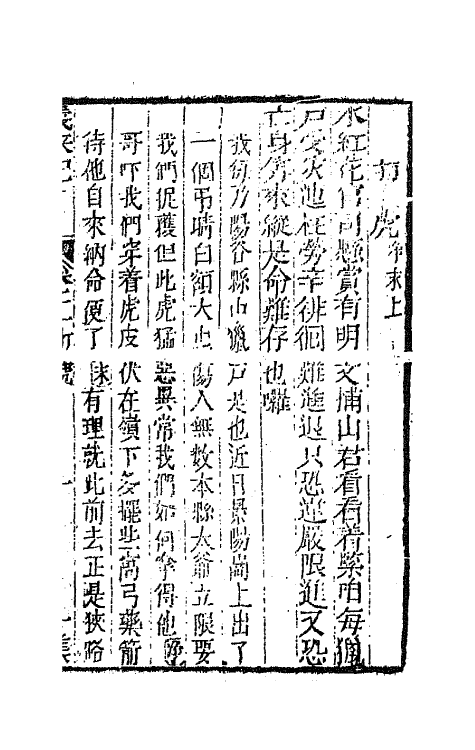 打虎淨末上
水紅花官司懸賞有明文捕山君看看着緊咱每獵
戸受火池枉勞辛徘徊難進退只恐違嚴限進又恐
亡身算來縱是命難存也囉
我們乃陽谷縣山獵戸是也近日景陽崗上出了
一個吊睛白額大虫傷人無數本縣太爺立限要
我們促獲但此虎猛惡異常我們如何拿得他
哥吓我們穿着虎皮伏在嶺下多擺些窩弓藥箭
待他自來納命便了 有理就此前去正是狹路
義俠記 打虎 一 集